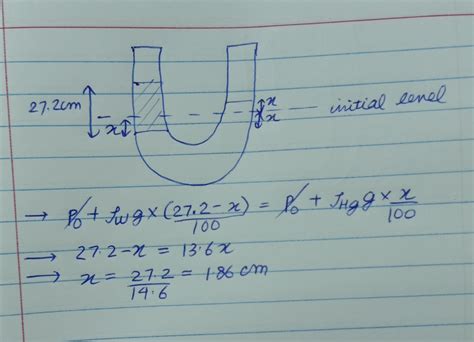 27.2cm
x
x
x
initial level
→ P₀ + ρw g × (27.2 - x)/100 = P₀ + ρHg g × x/100
→ 27.2 - x = 13.6x
→ x = 27.2/14.6 = 1.86 cm